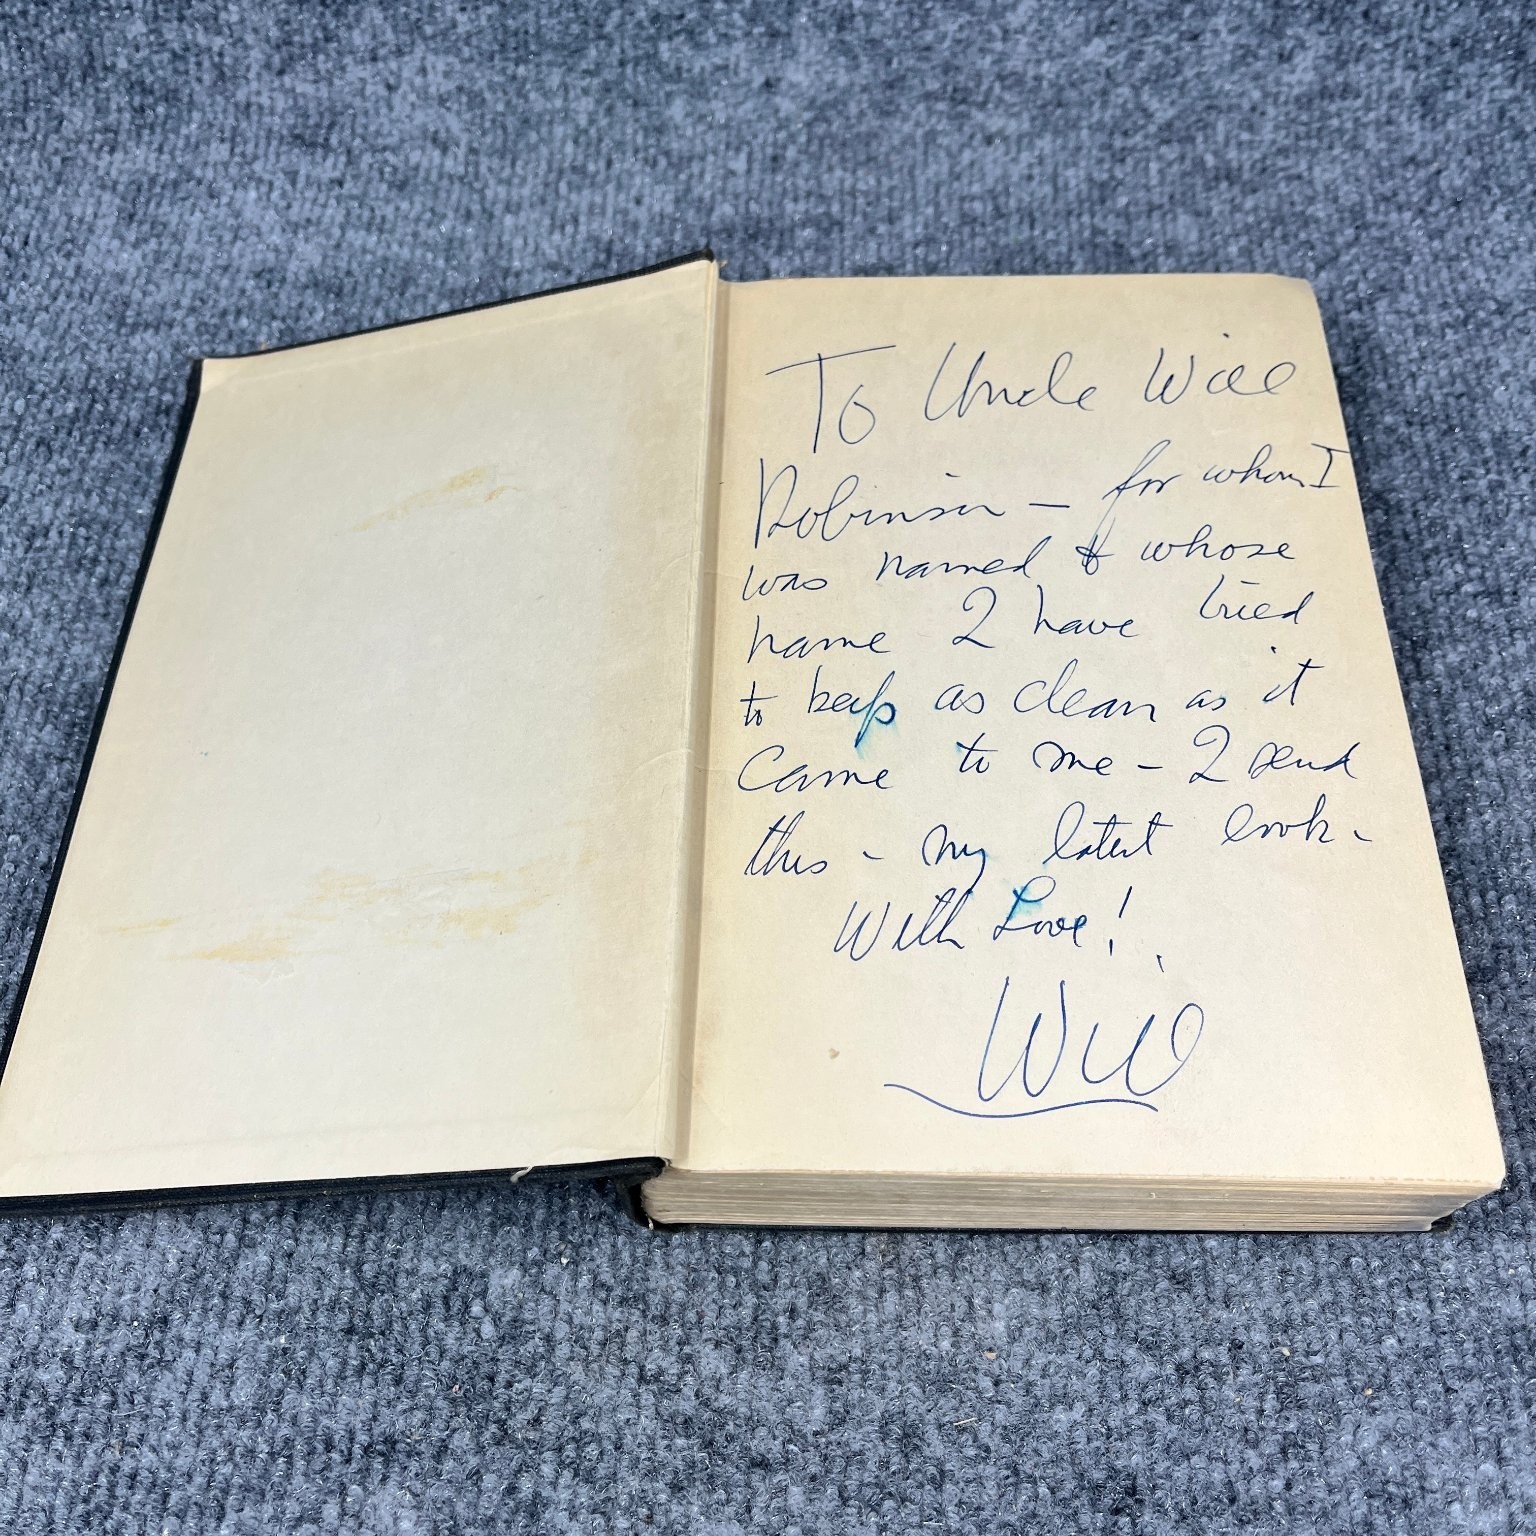 To Uncle Will
Robinson — for whom I
was named & whose
name I have tried
to keep as clean as it
came to me — I send
this - my latest book -
With Love!
Will